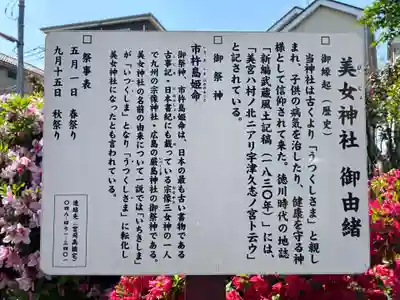 美女神社 御由緒
□ 御縁起（歴史）
当神社は古くより「うつくしさま」と親し
まれ、子供の病気を治したり、健康を守る神
様として信仰されて来た。徳川時代の地誌
「新編武蔵風土記稿（一八三〇年）」には、
「美宮ノ村ノ北ニアリ宇津久志ノ宮ト云ウ」
と記されている。
□ 御祭神
市杵島姫命
御祭神、市杵島姫命は、日本の最も古い書物である
古事記・日本書紀にも載っている宗像三女神の一人
で九州の宗像神社・広島の厳島神社の御祭神である。
美女神社の名前の由来について一説では「いちきしま」
が「いつくしま」となり「うつくしさま」に転化し
美女神社になったとも言われている。
□ 祭事表
五月一日 春祭り
九月十五日 秋祭り
連絡先